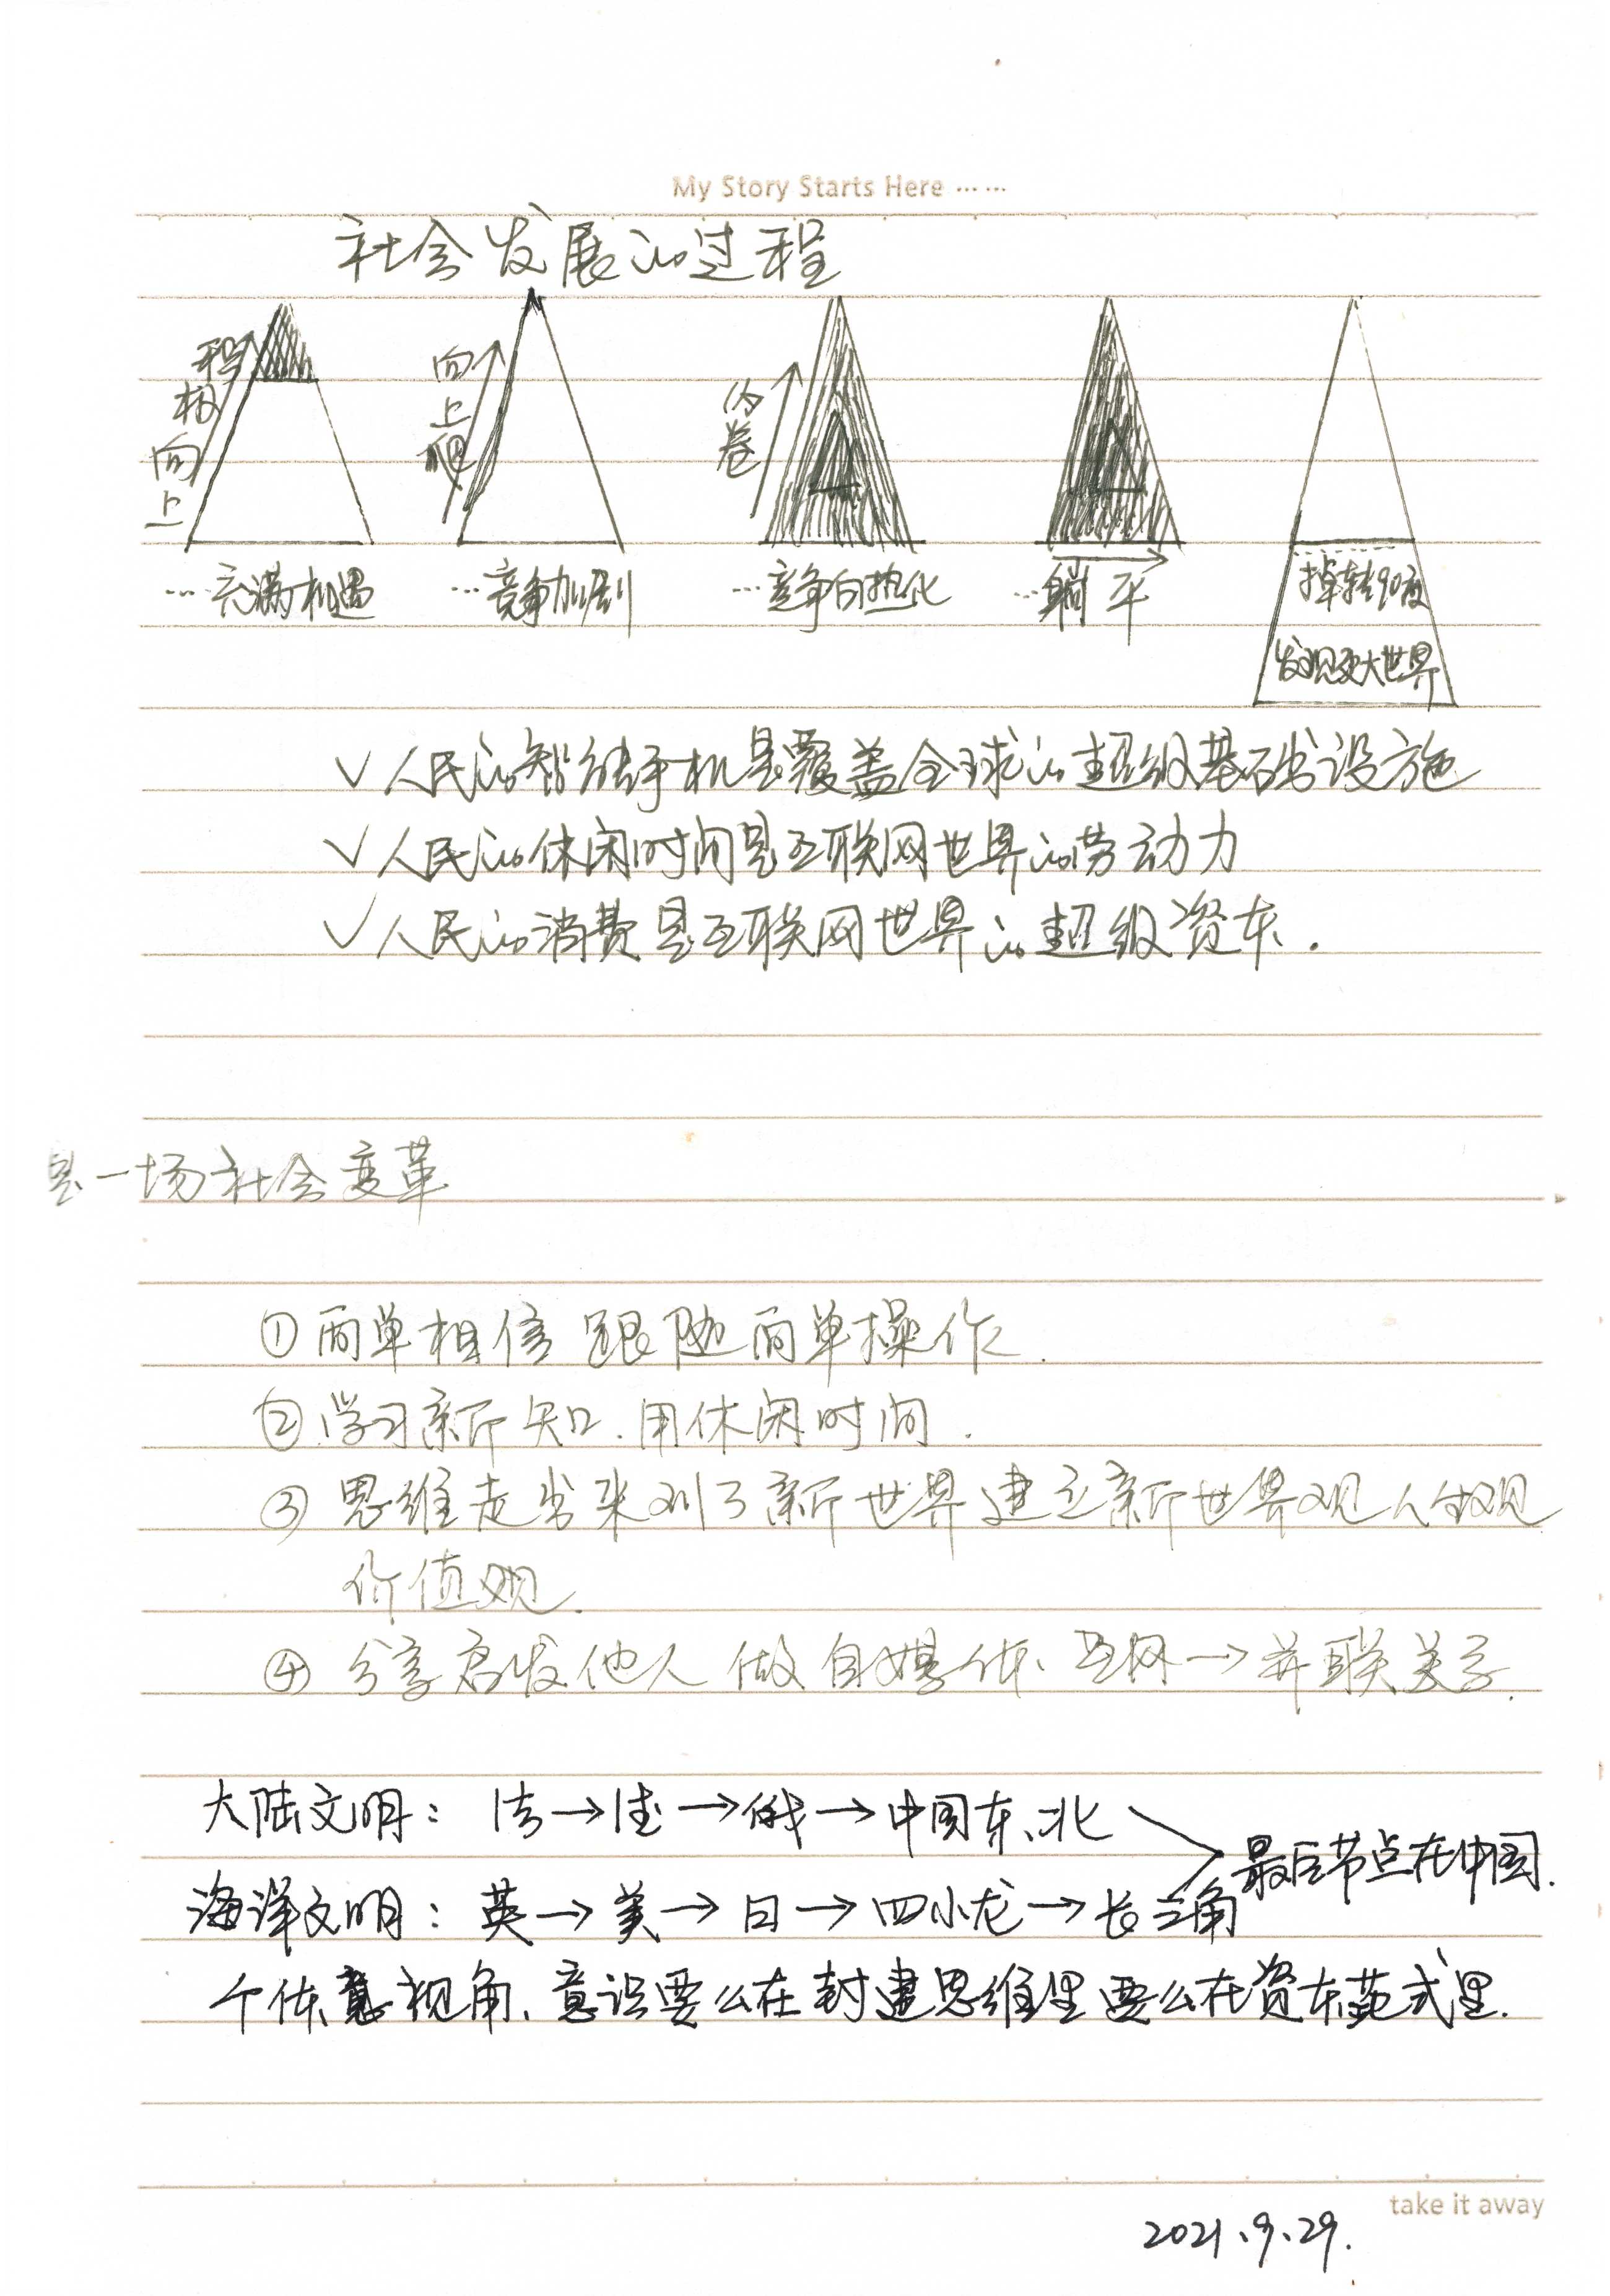 My Story Starts Here ... ...
社会发展的过程
积极向上
向上爬
内卷
...充满机遇
...竞争加剧
...竞争白热化
...躺平
掉转90度
发现更大世界
√人民的智能手机是覆盖全球的超级基础设施
√人民的休闲时间是互联网世界的劳动力
√人民的消费是互联网世界的超级资本.
是一场社会变革
①简单相信 跟随简单操作.
②学习新知.用休闲时间.
③思维走出来 到了新世界 建立新世界观人生观
价值观.
④分享启发他人 做自媒体、互网→并联关系.
大陆文明：法→德→俄→中国东、北
最后节点在中国.
海洋文明：英→美→日→四小龙→长三角
个体意视角、意识要么在封建思维里要么在资本范式里.
take it away
2021.9.29.